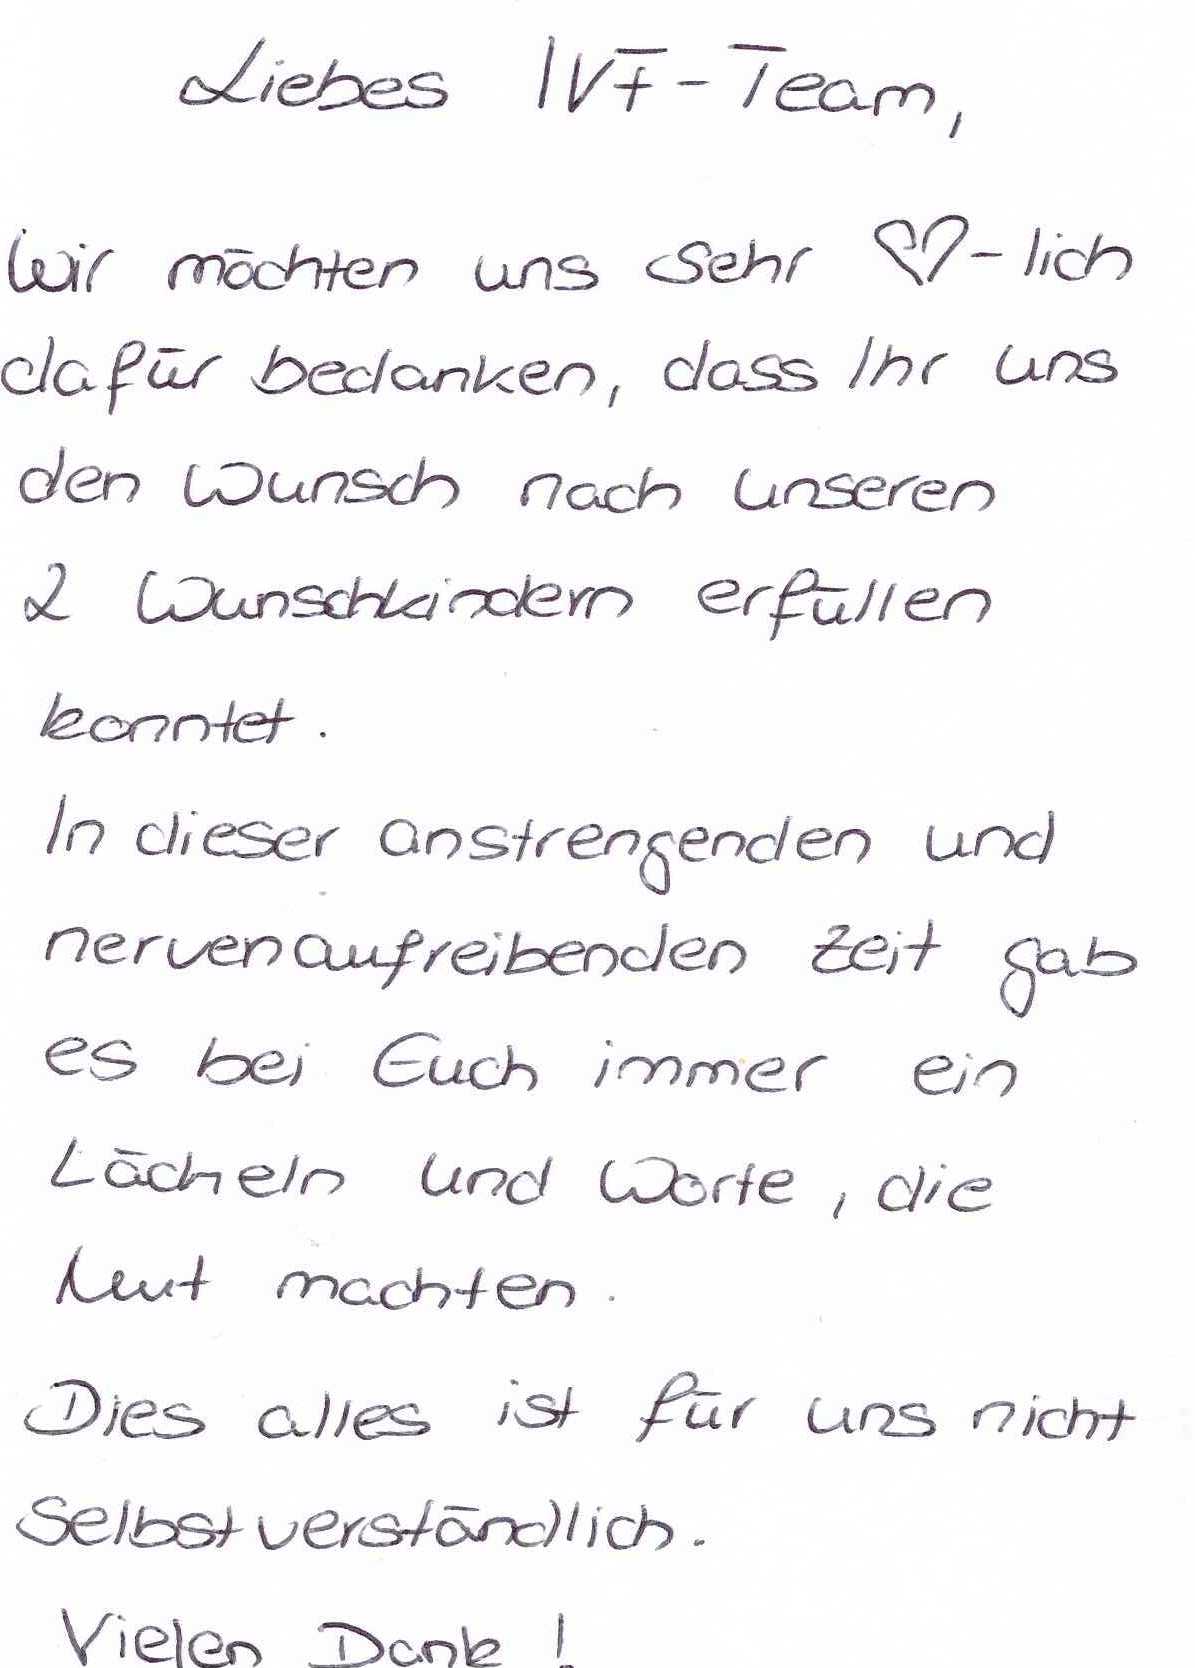 Liebes IVF-Team,
Wir möchten uns sehr ♡-lich
dafür bedanken, dass Ihr uns
den Wunsch nach unseren
2 Wunschkindern erfüllen
konntet.
In dieser anstrengenden und
nervenaufreibenden Zeit gab
es bei Euch immer ein
Lächeln und Worte, die
Mut machten.
Dies alles ist für uns nicht
selbstverständlich.
Vielen Dank!